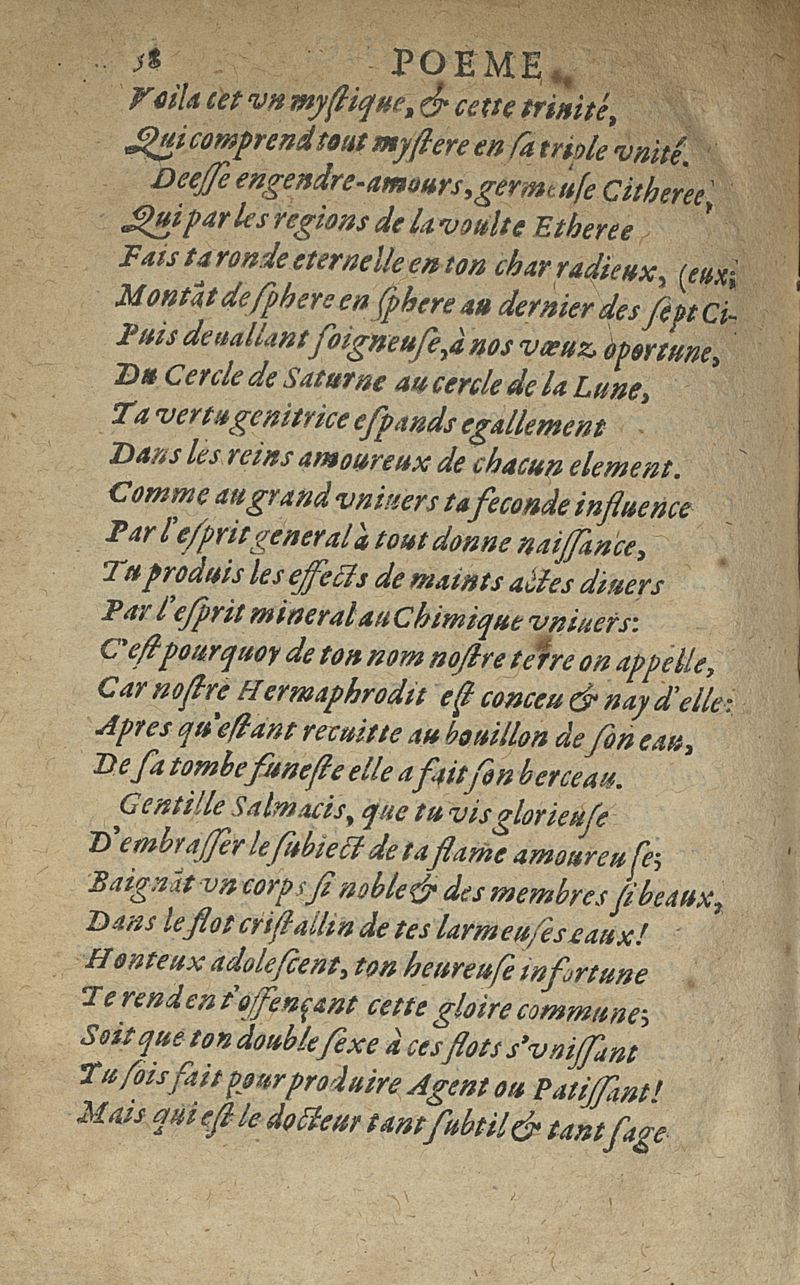 58 POEME
Voila cet vn myſtique, & cette trinité,
Qui comprend tout myſtere en ſa triple vnité.
Deeſſe engendre-amours, germeuſe Citheree,
Qui par les regions de la voulte Etheree
Fais ta ronde eternelle en ton char radieux, (eux;
Montāt de ſphere en ſphere au dernier des ſept Ci-
Puis deuallant ſoigneuſe, à nos vœuz oportune,
Du Cercle de Saturne au cercle de la Lune,
Ta vertu genitrice eſpands egallement
Dans les reins amoureux de chacun element.
Comme au grand vniuers ta feconde influence
Par l'eſprit general à tout donne naiſſance,
Tu produis les effects de maints actes diuers
Par l'eſprit mineral au Chimique vniuers:
C'eſt pourquoy de ton nom noſtre terre on appelle,
Car noſtre Hermaphrodit eſt conceu & nay d'elle:
Apres qu'eſtant recuitte au bouillon de ſon eau,
De ſa tombe funeſte elle a fait ſon berceau.
Gentille Salmacis, que tu vis glorieuſe
D'embraſſer le ſubiect de ta flame amoureuſe;
Baignāt vn corps ſi noble & des membres ſi beaux,
Dans le flot criſtallin de tes larmeuſes eaux!
Honteux adoleſcent, ton heureuſe infortune
Te rend en t'offençant cette gloire commune;
Soit que ton double ſexe à ces flots s'vniſſant
Tu ſois fait pour produire Agent ou Patiſſant!
Mais qui eſt le docteur tant ſubtil & tant ſage